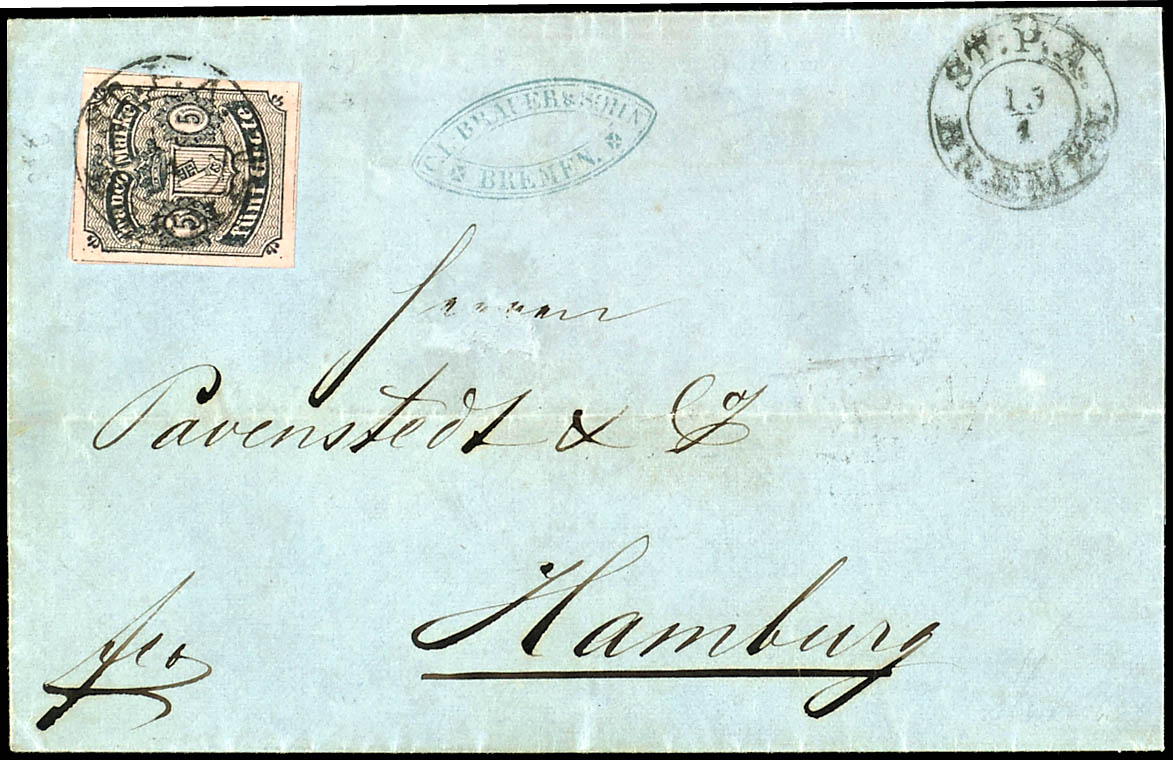 Franco Marke
5
5
fünf Grote
C. L. BRAUER & SOHN
BREMEN.
ST. P. A.
BREMEN
Herren
Pavenstedt & C°
Hamburg
fco